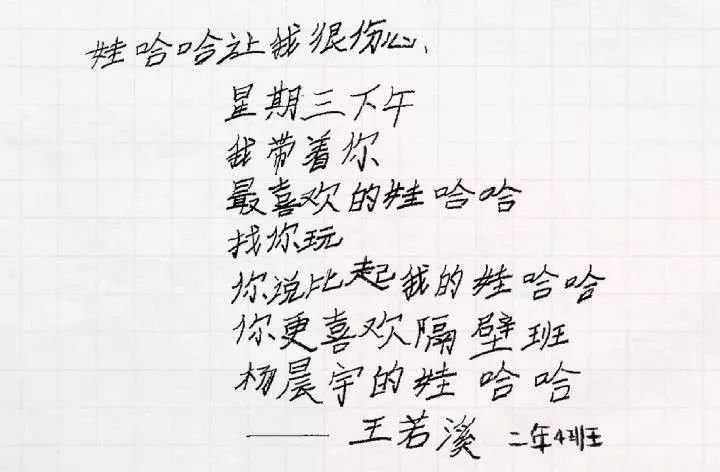 娃哈哈让我很伤心、
星期三下午
我带着你
最喜欢的娃哈哈
找你玩
你说比起我的娃哈哈
你更喜欢隔壁班
杨晨宇的娃哈哈
—— 王若溪 二年4班